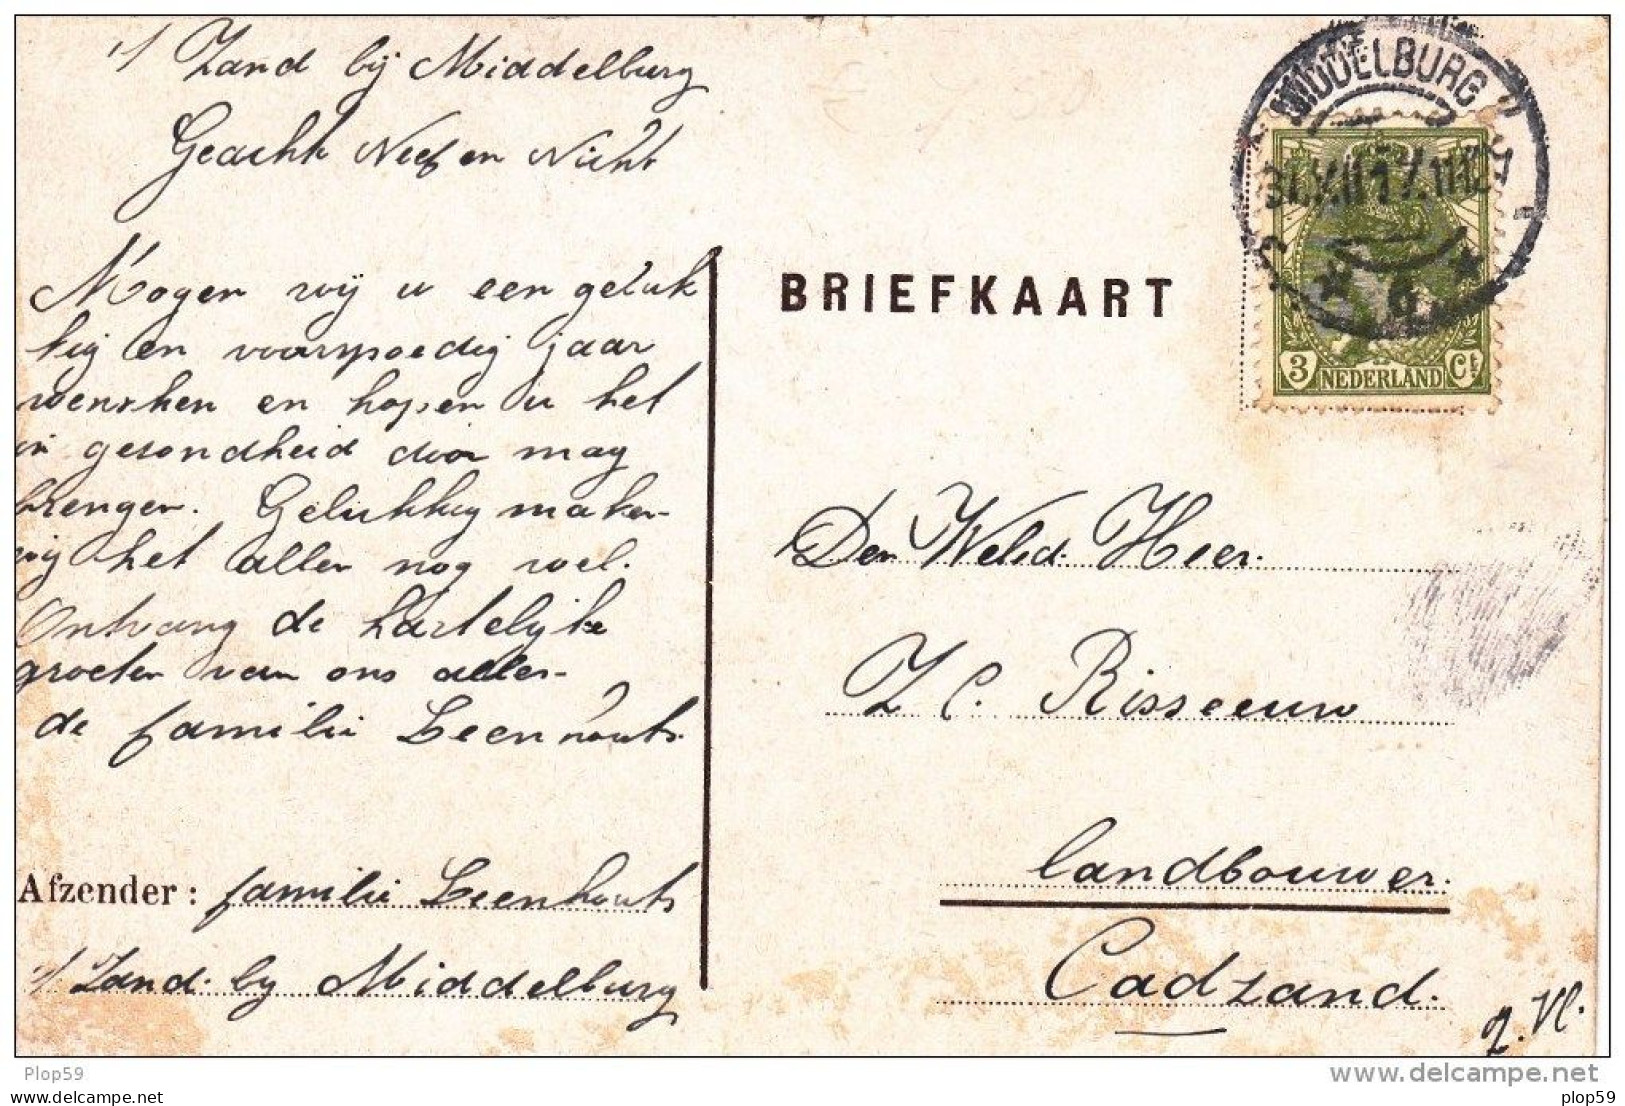 't Zand bij Middelburg
Geacht Neef en Nicht
Mogen wij u een geluk
kig en voorspoedig jaar
wenschen en hopen u het
in gesondheid door mag
brengen. Gelukkig maken
wij het allen nog wel.
Ontvang de hartelijke
groeten van ons allen-
de familie Leenhouts.
Afzender: familie Leenhouts
't Zand. by Middelburg
BRIEFKAART
MIDDELBURG
31.XII 17.11-12
3 NEDERLAND Ct
Den Weled. Heer.
Z C. Risseeuw
landbouwer.
Cadzand.
Z. Vl.
Plop59
www.delcampe.net
plop59